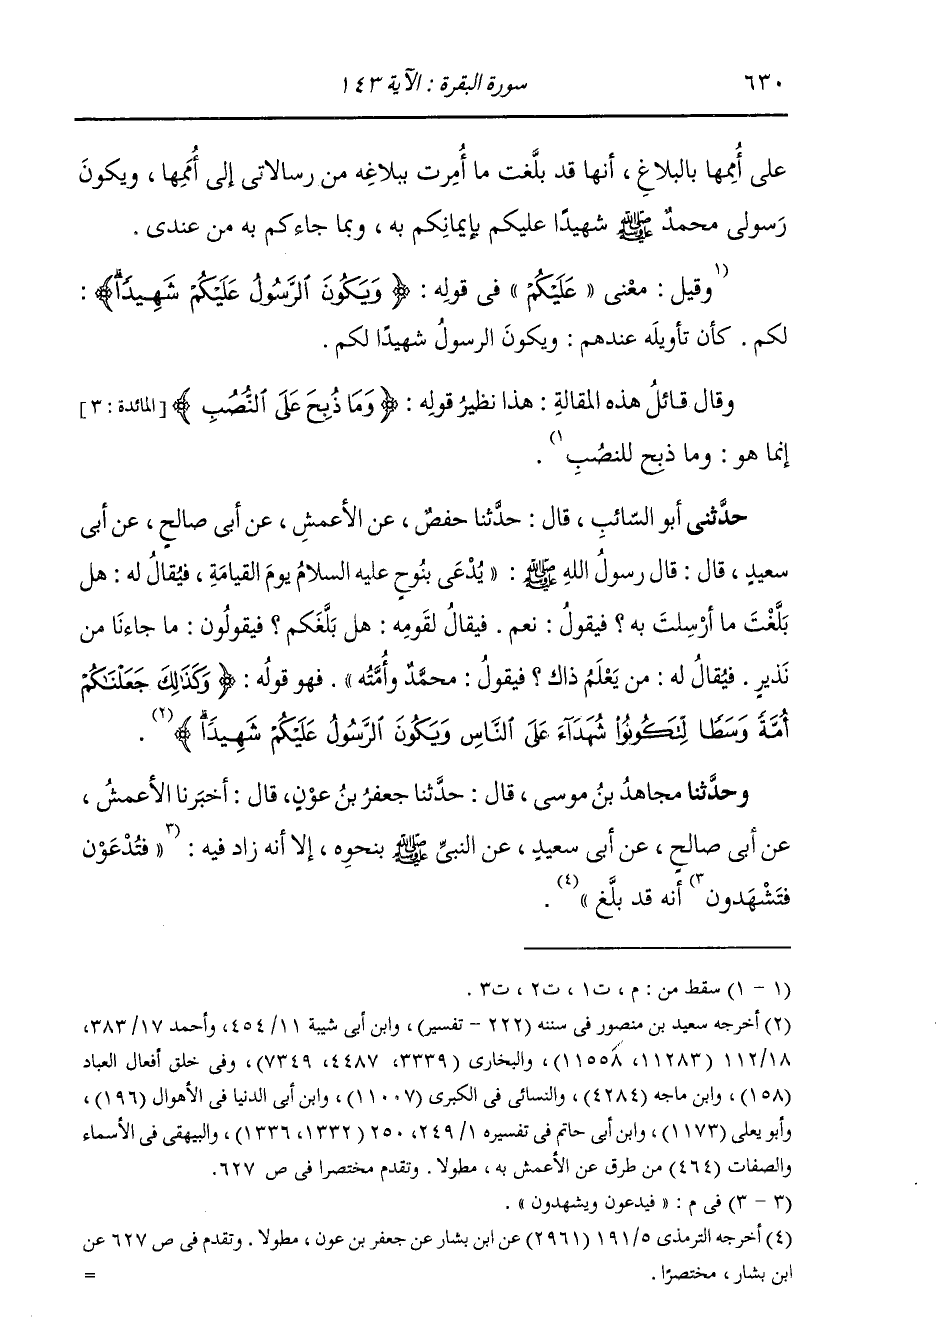 ٦٣٠ سورة البقرة : الآية ١٤٣
على أُممِها بالبلاغِ ، أنها قد بلَّغت ما أُمِرت ببلاغِه من رسالاتى إلى أُمَمِها ، ويكونَ
رَسولى محمدٌ ﷺ شهيدًا عليكم بإيمانِكم به ، وبما جاءكم به من عندى .
(١) وقيل : معْنى « عَلَيْكُمْ » فى قولِه : ﴿ وَيَكُونَ ٱلرَّسُولُ عَلَيْكُمْ شَهِيدًا ﴾ :
لكم . كأن تأويلَه عندهم : ويكونَ الرسولُ شهيدًا لكم .
وقال قائلُ هذه المقالةِ : هذا نظيرُ قولِه : ﴿ وَمَا ذُبِحَ عَلَى ٱلنُّصُبِ ﴾ [المائدة : ٣]
إنما هو : وما ذبح للنصُبِ ١) .
حدَّثنى أبو السّائبِ ، قال : حدَّثنا حفصٌ ، عن الأعمشِ ، عن أبى صالحٍ ، عن أبى
سعيدٍ ، قال : قال رسولُ اللهِ ﷺ : « يُدْعَى بنُوحٍ عليه السلامُ يومَ القيامَةِ ، فيُقالُ له : هل
بَلَّغْتَ ما أرْسِلتَ به ؟ فيقولُ : نعم . فيقالُ لقَومِه : هل بلَّغَكم ؟ فيقولُون : ما جاءنَا من
نَذيرٍ . فيُقالُ له : من يَعْلَمُ ذاك ؟ فيقولُ : محمَّدٌ وأُمَّتُه » . فهو قولُه : ﴿ وَكَذَٰلِكَ جَعَلْنَٰكُمْ
أُمَّةً وَسَطًا لِّتَكُونُوا۟ شُهَدَآءَ عَلَى ٱلنَّاسِ وَيَكُونَ ٱلرَّسُولُ عَلَيْكُمْ شَهِيدًا ﴾ (٢) .
وحدَّثنا مجاهدُ بنُ موسى ، قال : حدَّثنا جعفرُ بنُ عوْنٍ، قال : أخبَرنا الأعمشُ ،
عن أبى صالحٍ ، عن أبى سعيدٍ ، عن النبىِّ ﷺ بنحوِه ، إلا أنه زاد فيه : (٣ « فتُدْعَوْن
فتَشْهَدون ٣) أنه قد بلَّغ » (٤) .
(١ - ١) سقط من : م ، ت١ ، ت٢ ، ت٣ .
(٢) أخرجه سعيد بن منصور فى سننه (٢٢٢ - تفسير) ، وابن أبى شيبة ١١/ ٤٥٤، وأحمد ١٧/ ٣٨٣،
١١٢/١٨ (١١٢٨٣، ١١٥٥٨)، والبخارى (٣٣٣٩، ٤٤٨٧، ٧٣٤٩)، وفى خلق أفعال العباد
(١٥٨) ، وابن ماجه (٤٢٨٤) ، والنسائى فى الكبرى (١١٠٠٧) ، وابن أبى الدنيا فى الأهوال (١٩٦) ،
وأبو يعلى (١١٧٣) ، وابن أبى حاتم فى تفسيره ١/ ٢٤٩، ٢٥٠ (١٣٣٢، ١٣٣٦)، والبيهقى فى الأسماء
والصفات (٤٦٤) من طرق عن الأعمش به ، مطولا . وتقدم مختصرا فى ص ٦٢٧.
(٣ - ٣) فى م : « فيدعون ويشهدون » .
(٤) أخرجه الترمذى ١٩١/٥ (٢٩٦١) عن ابن بشار عن جعفر بن عون ، مطولا . وتقدم فى ص ٦٢٧ عن
ابن بشار ، مختصرًا . =